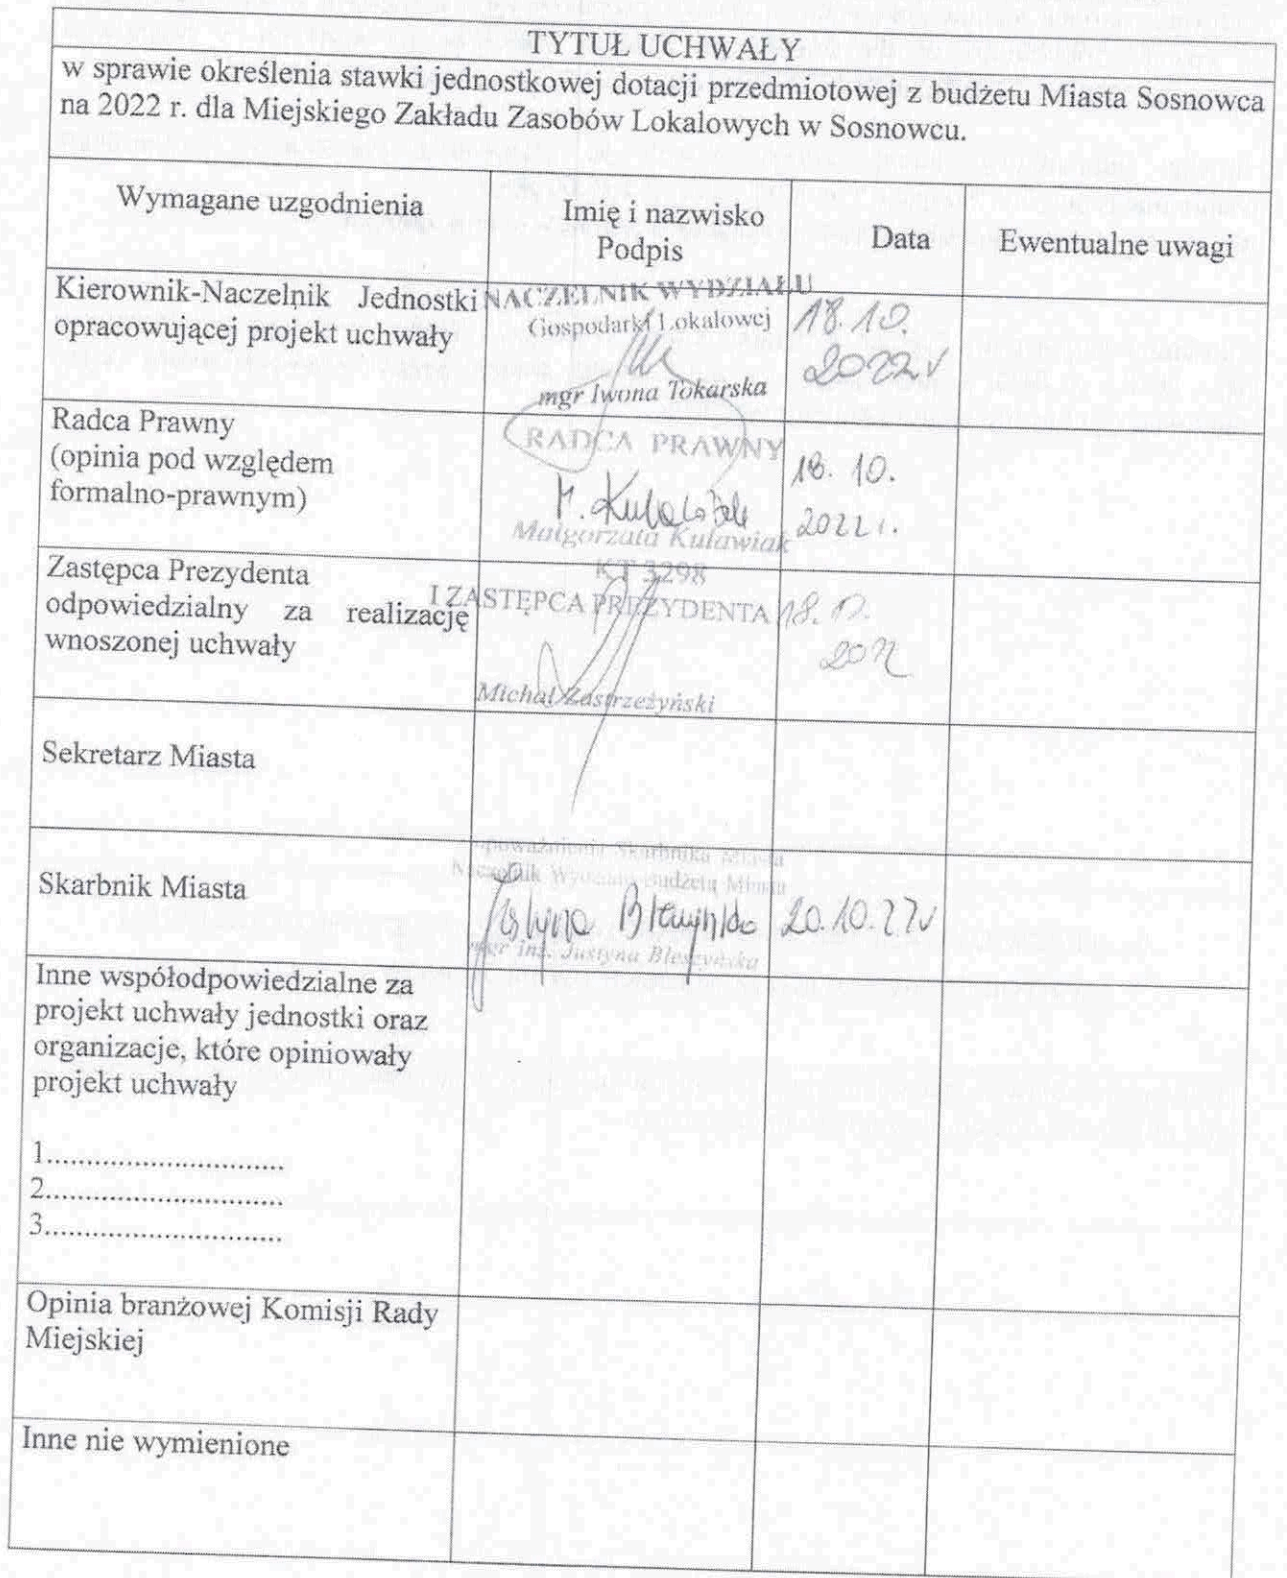 TYTUŁ UCHWAŁY
w sprawie określenia stawki jednostkowej dotacji przedmiotowej z budżetu Miasta Sosnowca
na 2022 r. dla Miejskiego Zakładu Zasobów Lokalowych w Sosnowcu.
Wymagane uzgodnienia
Imię i nazwisko
Podpis
Data
Ewentualne uwagi
Kierownik-Naczelnik Jednostki
opracowującej projekt uchwały
NACZELNIK WYDZIAŁU
Gospodarki Lokalowej
mgr Iwona Tokarska
18.10.
2022 r
Radca Prawny
(opinia pod względem
formalno-prawnym)
RADCA PRAWNY
M. Kulawiak
Małgorzata Kulawiak
KT 3298
18. 10.
2022 r.
Zastępca Prezydenta
odpowiedzialny za realizację
wnoszonej uchwały
I ZASTĘPCA PREZYDENTA
Michał Zastrzeżyński
18.10.
2022
Sekretarz Miasta
Skarbnik Miasta
upoważnienia Skarbnika Miasta
Naczelnik Wydziału Budżetu Miasta
Justyna Bleszyńska
mgr inż. Justyna Bleszyńska
20.10.22r
Inne współodpowiedzialne za
projekt uchwały jednostki oraz
organizacje, które opiniowały
projekt uchwały
1..............................
2..............................
3..............................
Opinia branżowej Komisji Rady
Miejskiej
Inne nie wymienione